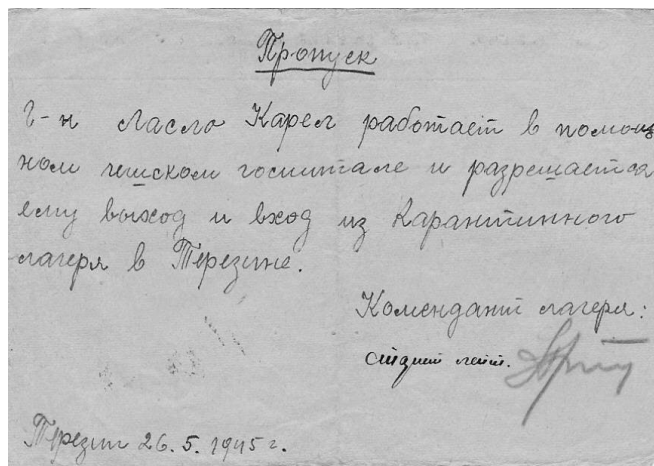 Пропуск
г-н Ласло Карел работает в помощ
ном чешском госпитале и разрешается
ему выход и вход из Карантинного
лагеря в Терезине.
Комендант лагеря:
лейт.
Терезин 26.5.1945 г.